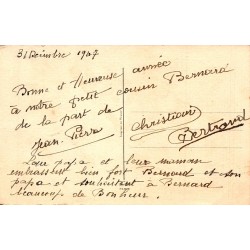 31 Décembre 1947
Bonne et Heureuse année
à notre petit cousin Bernard
de la part de
Jean Pierre Christian
Bertrand
Leur papa et leur maman
embrassent bien fort Bernard et son
papa et souhaitant à Bernard
beaucoup de Bonheur.